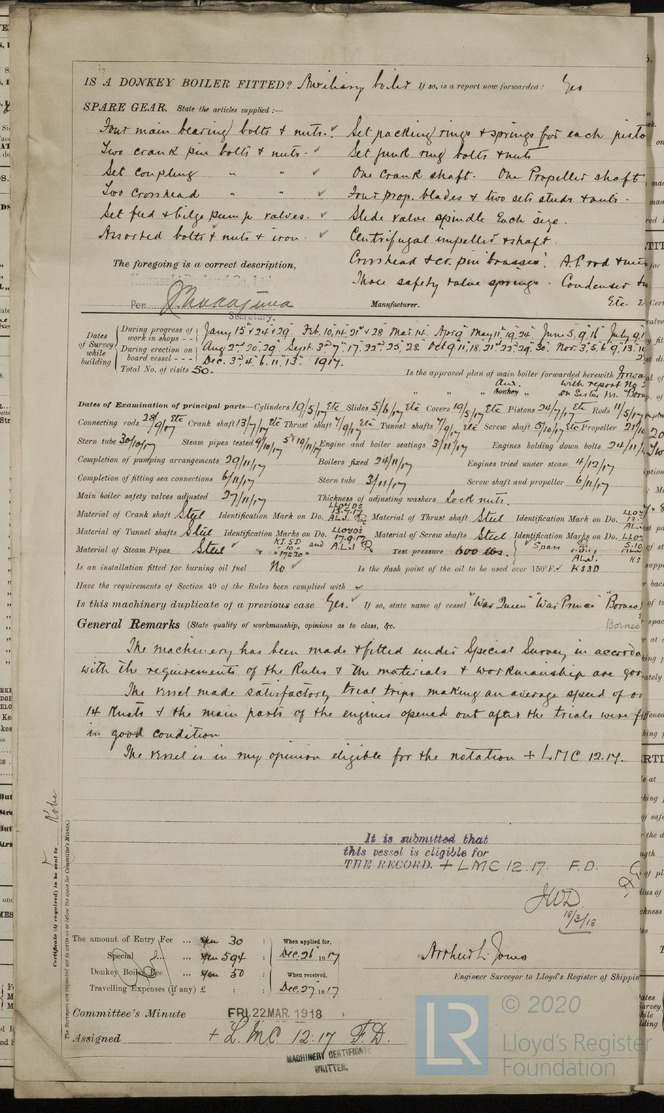 IS A DONKEY BOILER FITTED? Auxiliary boiler If so, is a report now forwarded? Yes
SPARE GEAR. State the articles supplied:—
Four main bearing bolts & nuts. Set packing rings & springs for each
Two crank pin bolts & nuts. Set junk ring bolts & nuts
Set coupling " " One Crank shaft. One Propeller shaft
Two Crosshead " " Four prop. blades & two sets studs & nuts.
Set feed & bilge pump valves. Slide valve spindle Each size.
Assorted bolts & nuts & iron. Centrifugal impeller & shaft.
The foregoing is a correct description, Crosshead & cr. pin brasses. A.P. rod &
Three safety valve springs. Condenser
Per Secretary. Manufacturer. Etc.
Dates of Survey while building
During progress of work in shops -- Jany 15th 24th 29 Feb. 10, 14, 21st & 28 Mar. 14 Apr 9 May 11, 19, 24 June 5, 9, 16 July 9
During erection on board vessel --- Aug 2nd 20, 29 Sept. 3rd 7, 17, 22nd 25, 28 Oct 9, 11, 18, 21st 22nd 29, 30. Nov. 3, 5, 6, 9, 13,
Dec. 3rd 4, 6, 11, 13. 1917.
Total No. of visits 50.
Is the approved plan of main boiler forwarded herewith
" " Aux. donkey " with report No
Dates of Examination of principal parts—Cylinders 19/5/17 Etc Slides 5/6/17 Etc Covers 19/5/17 Etc Pistons 24/7/17 Etc Rods 11/5/17
Connecting rods 28/9/17 Etc Crank shaft 13/7/17 Etc Thrust shaft 7/9/17 Etc Tunnel shafts 7/9/17 etc Screw shaft 5/10/17 Etc Propeller
Stern tube 30/10/17 Steam pipes tested 9/10/17 Engine and boiler seatings 3/11/17 Engines holding down bolts 24/11/17
Completion of pumping arrangements 29/11/17 Boilers fixed 24/11/17 Engines tried under steam 4/12/17
Completion of fitting sea connections 6/11/17 Stern tube 3/11/17 Screw shaft and propeller 6/11/17
Main boiler safety valves adjusted 27/11/17 Thickness of adjusting washers Lock nuts.
Material of Crank shaft Steel Identification Mark on Do. LLOYDS 13.7.17 A.L.J. Material of Thrust shaft Steel Identification Mark on Do.
Material of Tunnel shafts Steel Identification Marks on Do. LLOYDS 17.9.17 A.L.J. Material of Screw shafts Steel Identification Marks on Do.
Material of Steam Pipes Steel Test pressure 600 lbs.
Is an installation fitted for burning oil fuel No Is the flash point of the oil to be used over 150°F.
Have the requirements of Section 49 of the Rules been complied with
Is this machinery duplicate of a previous case Yes. If so, state name of vessel "War Queen" "War Prince" "Borneo
Borneo
General Remarks (State quality of workmanship, opinions as to class, &c.
The machinery has been made & fitted under Special Survey in
with the requirements of the Rules & the materials & workmanship are
The vessel made satisfactory trial trips making an average speed of
14 knots & the main parts of the engines opened out after the trials were
in good condition
The vessel is in my opinion eligible for the notation + LMC 12.17.
It is submitted that
this vessel is eligible for
THE RECORD. + LMC 12.17. F.D.
JWD
18/3/18
Certificate (if required) to be sent to Kobe
The amount of Entry Fee ... Yen 30 : When applied for,
Special ... Yen 594 : Dec. 26 1917
Donkey Boiler Fee ... Yen 50 : When received,
Travelling Expenses (if any) £ : Dec. 27 1917
Arthur L. Jones
Engineer Surveyor to Lloyd's Register of
Committee's Minute FRI. 22 MAR. 1918
Assigned + L.M.C. 12.17 F.D.
MACHINERY CERTIFICATE
WRITTEN.
LR
© 2020
Lloyd's Register
Foundation